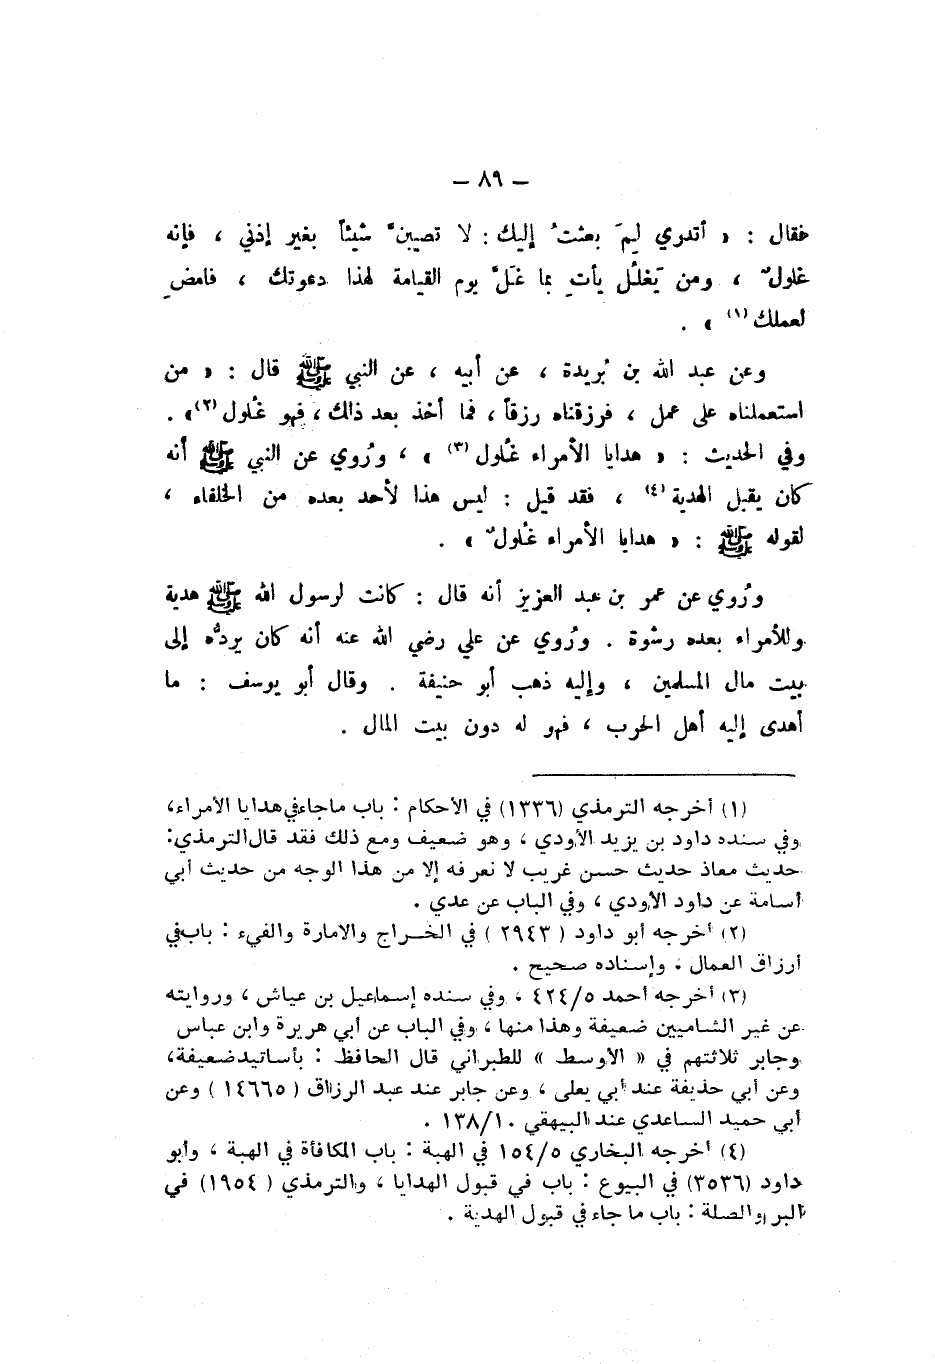 - ٨٩ -
فقال : « أتدري لِمَ بعثتُ إليك : لا تصيبنَّ شيئاً بغير إذني ، فإنه
غلولٌ ، ومن يَغلُل يأتِ بما غلَّ يوم القيامة لهذا دعوتك ، فامضِ
لعملك (١) » .
وعن عبد الله بن بُريدة ، عن أبيه ، عن النبي ﷺ قال : « من
استعملناه على عمل ، فرزقناه رزقاً ، فما أخذ بعد ذلك ، فهو غُلول (٢) » .
وفي الحديث : « هدايا الأمراء غُلول (٣) » ، ورُوي عن النبي ﷺ أنه
كان يقبل الهدية (٤) ، فقد قيل : ليس هذا لأحد بعده من الخلفاء ،
لقوله ﷺ : « هدايا الأمراء غُلولٌ » .
ورُوي عن عمر بن عبد العزيز أنه قال : كانت لرسول الله ﷺ هدية
وللأمراء بعده رشوة . ورُوي عن علي رضي الله عنه أنه كان يردُّه إلى
بيت مال المسلمين ، وإليه ذهب أبو حنيفة . وقال أبو يوسف : ما
أهدى إليه أهل الحرب ، فهو له دون بيت المال .
(١) أخرجه الترمذي (١٣٣٦) في الأحكام : باب ماجاء في هدايا الأمراء،
وفي سنده داود بن يزيد الأودي ، وهو ضعيف ومع ذلك فقد قال الترمذي:
حديث معاذ حديث حسن غريب لا نعرفه إلا من هذا الوجه من حديث أبي
أسامة عن داود الأودي ، وفي الباب عن عدي .
(٢) أخرجه أبو داود ( ٢٩٤٣ ) في الخراج والامارة والفيء : باب في
أرزاق العمال ، وإسناده صحيح .
(٣) أخرجه أحمد ٤٢٤/٥ ، وفي سنده إسماعيل بن عياش ، وروايته
عن غير الشاميين ضعيفة وهذا منها ، وفي الباب عن أبي هريرة وابن عباس
وجابر ثلاثتهم في « الأوسط » للطبراني قال الحافظ : بأسانيد ضعيفة،
وعن أبي حذيفة عند أبي يعلى ، وعن جابر عند عبد الرزاق ( ١٤٦٦٥ ) وعن
أبي حميد الساعدي عند البيهقي ١٣٨/١٠ .
(٤) أخرجه البخاري ١٥٤/٥ في الهبة : باب المكافأة في الهبة ، وأبو
داود (٣٥٣٦) في البيوع : باب في قبول الهدايا ، والترمذي ( ١٩٥٤) في
البر والصلة : باب ما جاء في قبول الهدية .